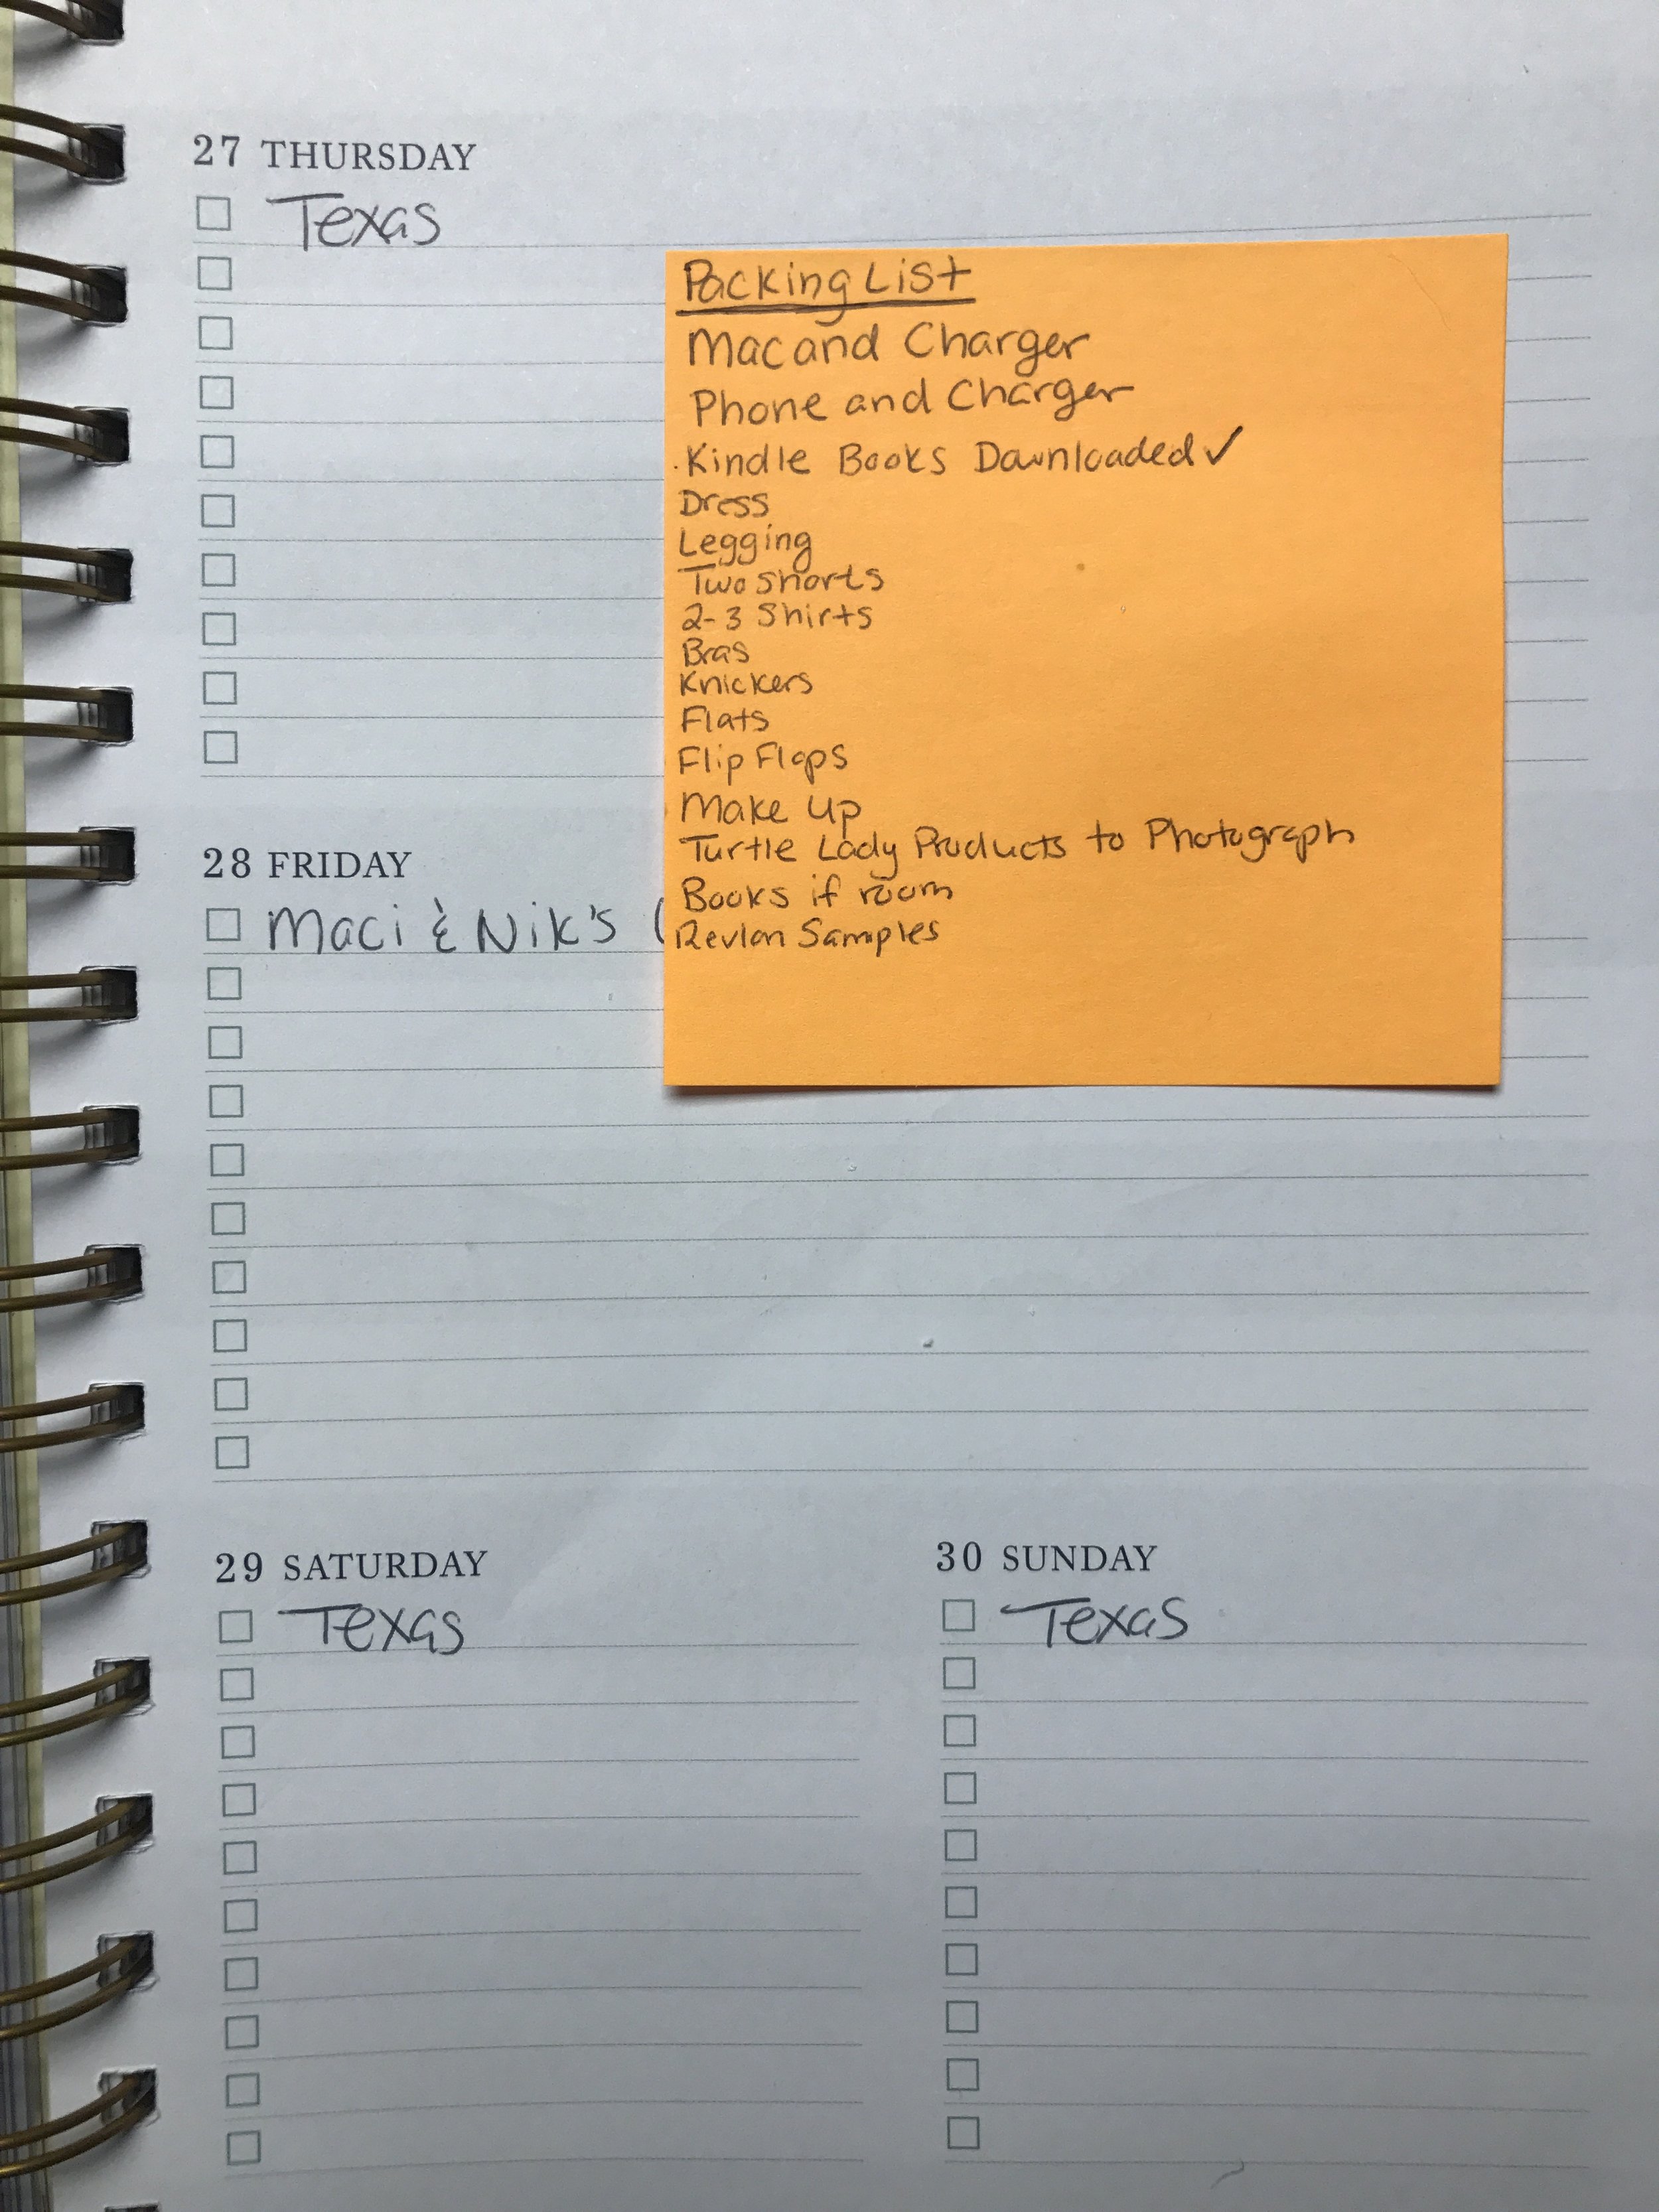 27 THURSDAY
Texas
Packing List
Mac and Charger
Phone and Charger
Kindle Books Downloaded ✓
Dress
Legging
Two Shorts
2-3 Shirts
Bras
Knickers
Flats
Flip Flops
Make Up
Turtle Lady Products to Photograph
Books if room
Revlon Samples
28 FRIDAY
Maci & Nik's (
29 SATURDAY
Texas
30 SUNDAY
Texas